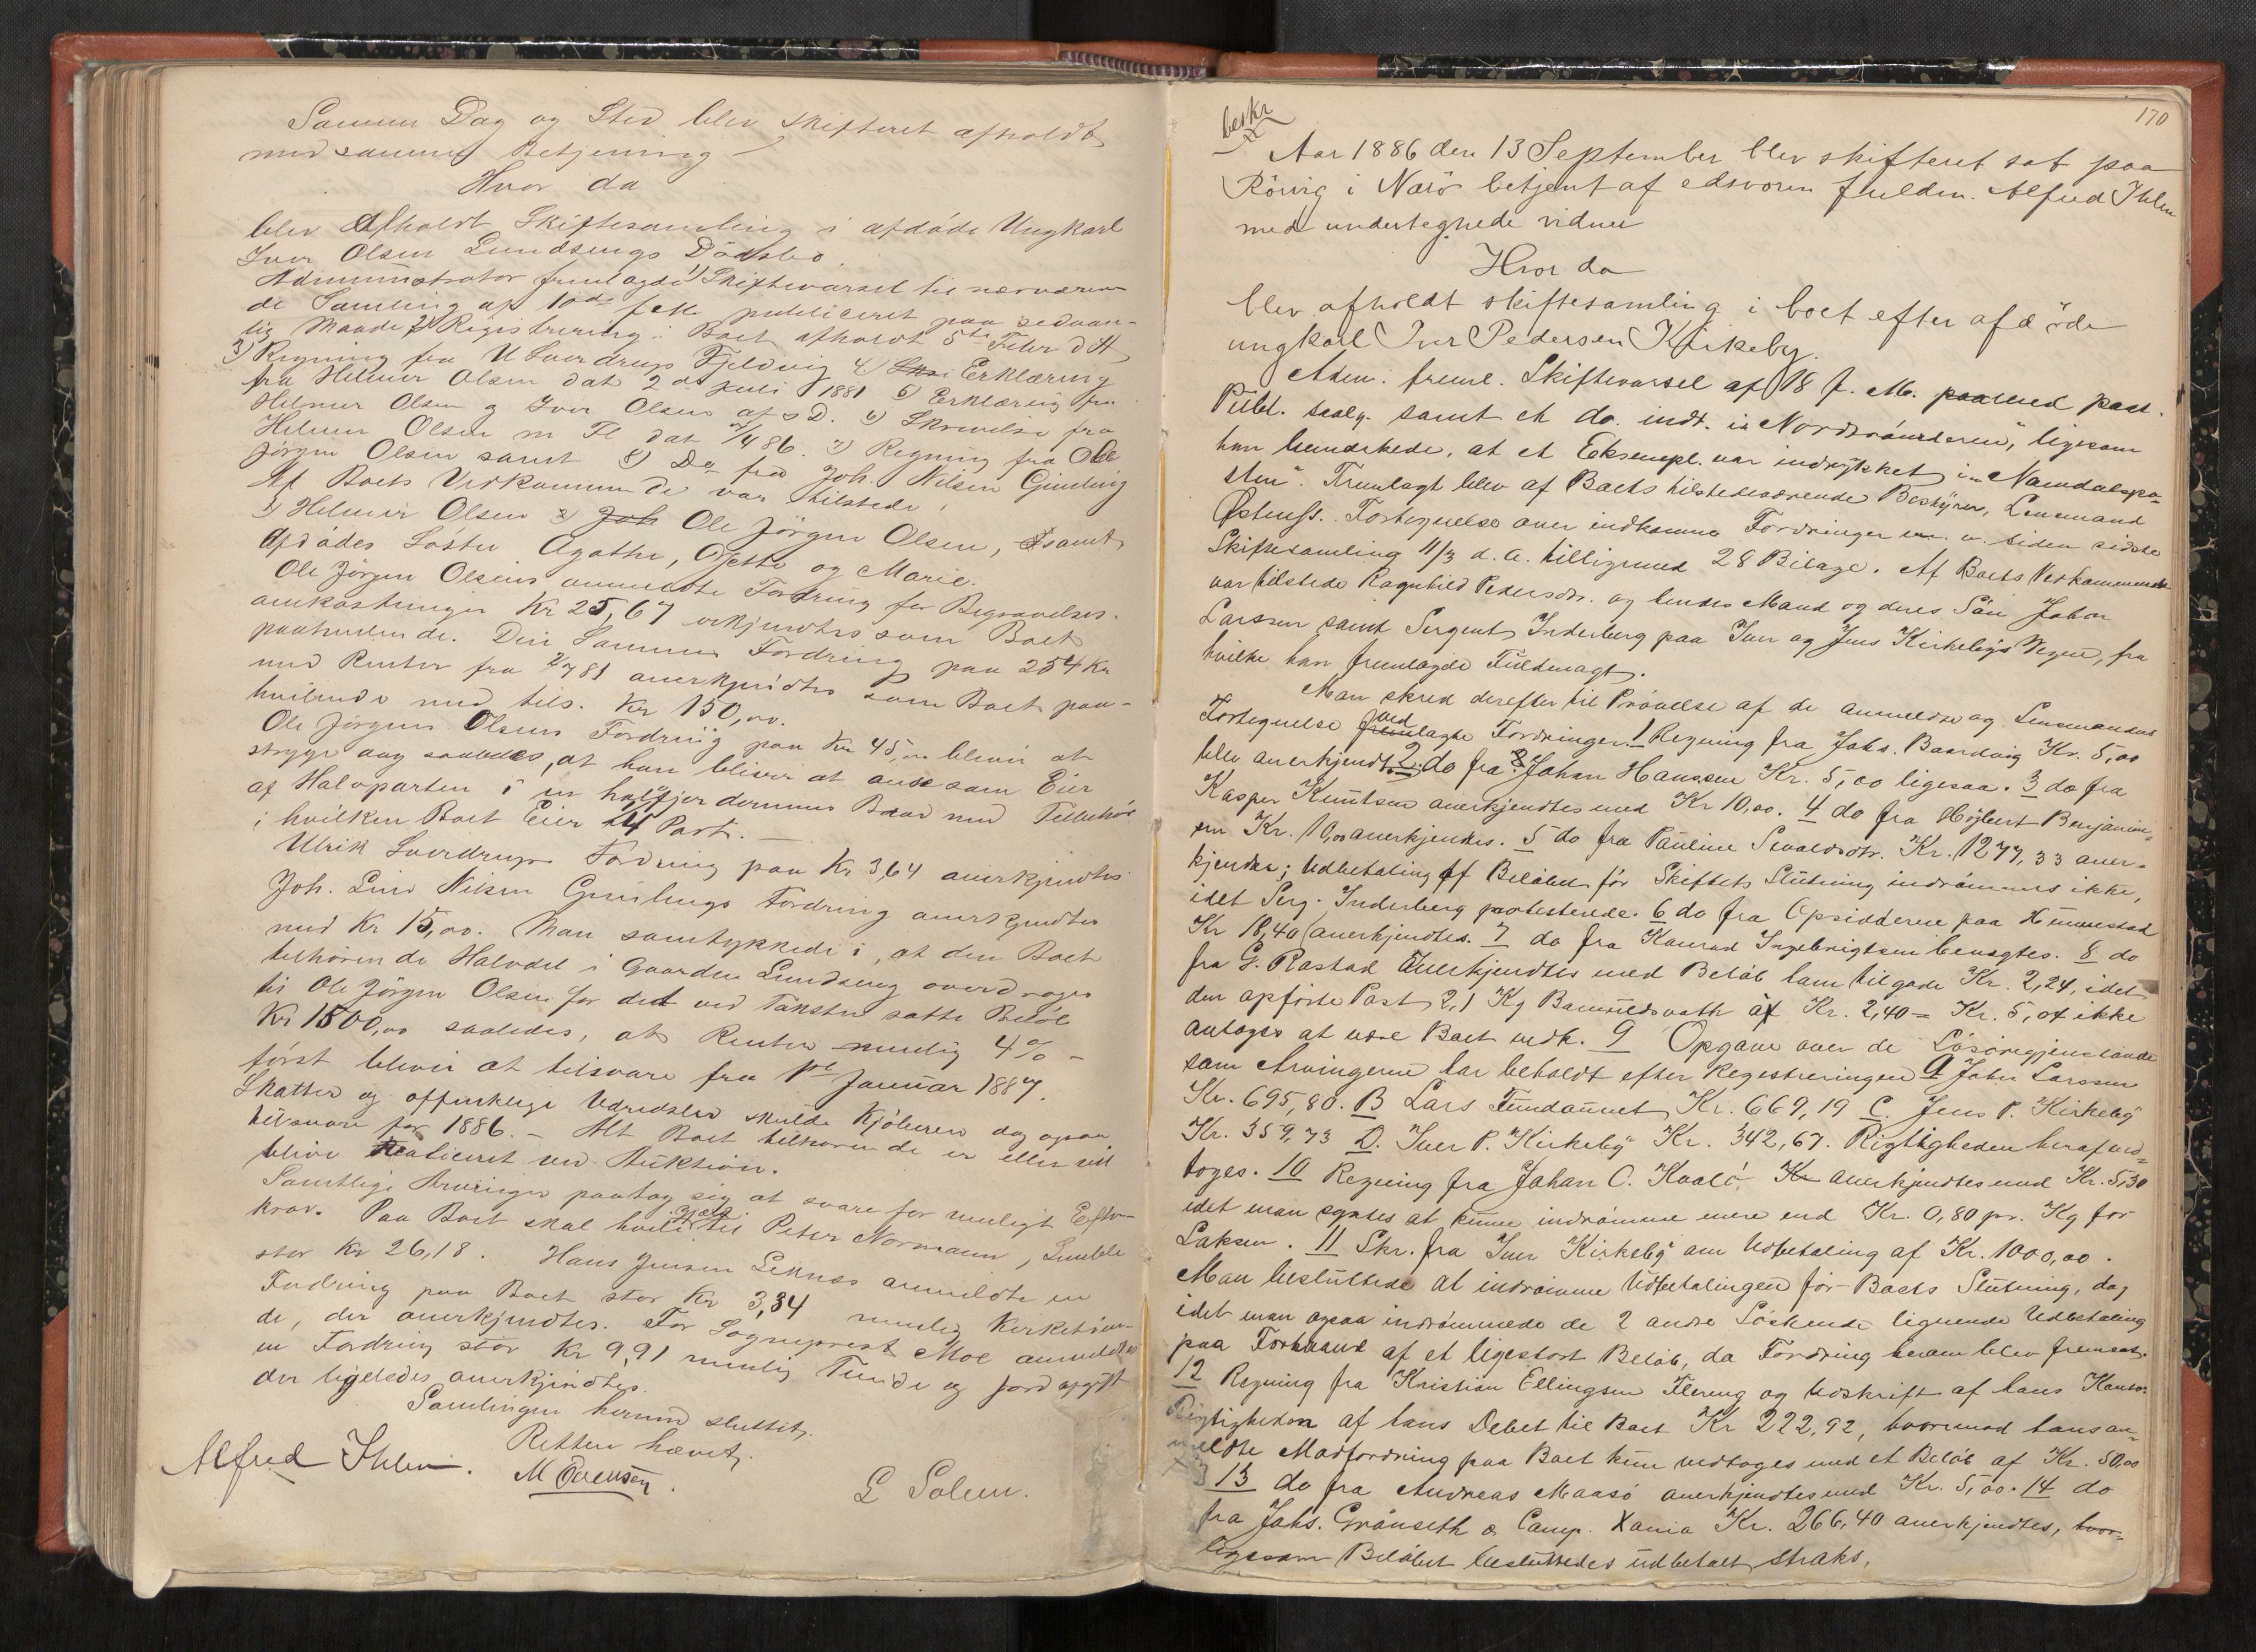 Samme Dag og Sted blev Skifteret afholdt
med samme Betjening
Hvor da
blev Afholdt Skiftesamling i afdøde Ungkarl
Iver Olsen Lundsengs Dødsbo.
Administrator fremlagde 1) Skiftevarsel til nærværen-
de Samling af 10de f. M. publiceret paa sedvan-
lig Maade 2) Registrering i Boet afholdt 5te
3) Regning fra U Sverdrup Fjeldvig 4) Erklæring
fra Helmer Olsen dat 2den Juli 1881 5) Erklæring fra
Helmer Olsen og Iver Olsen af s D. 6) Skrivelse fra
Helmer Olsen m Fl dat /4 86. 7) Regning fra Ole
Jörgen Olsen samt 8) Do fra Joh. Nilsen
Af Boets Vedkommende var tilstede,
1) Helmer Olsen 2) Joh Ole Jörgen Olsen, samt
Afdødes Søstre Agathe, Ojette og Marie.
Ole Jörgen Olsens anmeldte Fordring for Begravelses-
omkostninger Kr 25,67 erkjendtes som Boet
paahvilende. Den Sammes Fordring paa 254 Kr
med Renter fra 2/7 81 anerkjendtes som Boet paa-
hvilende med tils. Kr 150,00.
Ole Jörgen Olsens Fordring paa Kr 45,00 bliver at
stryge dog saaledes, at han bliver at anse som Eier
af Halvparten i en halvfjerderums Baad med Tilbehör
i hvilken Boet Eier 1/4 Part. —
Ulrik Sverdrups Fordring paa Kr 3,64 anerkjendtes
Joh. Nilsen Fordring anerkjendtes
med Kr 15,00. Man samtykkede i, at den Boet
tilhørende Halvdel i Gaarden Lundseng overdroges
til Ole Jörgen Olsen for det ved Taksten satte Beløb
Kr 1500,00 saaledes, at Renter nemlig 4% -
først bliver at tilsvare fra 1ste Januar 1887.
Skatter og offentlige Udredsler skulde Kjøberen dog ogsaa
tilsvare for 1886. — Alt Boet tilhørende er eller vil
blive realiceret ved Auktion.
Samtlige Arvinger paatog sig at svare for muligt Efter-
krav. Paa Boet skal hvile Gjæld til Peter Normann,
stor Kr 26,18. Hans Jensen Leknæs anmeldte en
Fordring paa Boet stor Kr 3,34 nemlig Kirketien-
de, der anerkjendtes. For Sogneprest Moe anmeldtes
en Fordring stor Kr 9,91 nemlig Tiende og Jordafgift
der ligeledes anerkjendtes.
Samlingen hermed sluttet.
Retten hævet.
Alfred Ihlen. M Evensen. L Solem.
170
beskr
Aar 1886 den 13 September blev skifteret sat paa
Rörvig i Nærö betjent af edsvoren fuldm. Alfred Ihlen
med undertegnede vidner
Hvor da
blev afholdt skiftesamling i boet efter afdöde
ungkarl Iver Pedersen Kirkeby.
Adm. freml. Skiftevarsel af 18 f. M. paa
Publ. samt et do. indt. i „Nordtrønderen", ligesom
han bemærkede, at et Eksempl. var indrykket i „Namdalspo-
sten". Fremlagt blev af Boets tilstedeværende Bestyrer, Lensmand
Fortegnelse over indkomne Fordringer m. v. siden sidste
Skiftesamling 11/3 d. A. tilligemed 28 Bilage. Af Boets Vedkommende
var tilstede Ragnhild Pedersdr. og hendes Mand og deres Sön Johan
Larssen samt Sergent Inderberg paa Iver og Jens Kirkebys Vegne, fra
hvilke han fremlagde Fuldmagt.
Man skred derefter til Prövelse af de anmeldte og Lensmandens
Fortegnelse vedlagte Fordringer. 1 Regning fra Johs. Baardvig Kr. 5,00
blev anerkjendt. 2 do fra Johan Hanssen Kr. 5,00 ligesaa. 3 do fra
Kasper Knutsen anerkjendtes med Kr 10,00. 4 do fra Höjbert Benjamin-
sen Kr. 10,00 anerkjendtes. 5 do fra Pauline Sevaldsdtr. Kr. 1277,33 aner-
kjendte; Udbetaling af Belöbet för Skiftets Slutning indrömmes ikke,
idet Serg. Inderberg protesterede. 6 do fra Opsidderne paa Hünnestad
Kr 18,40 anerkjendtes. 7 do fra Konrad Ingebrigtsen benegtes. 8 do
fra G. Rastad Anerkjendtes med Belöb ham tilgode Kr. 2,24, idet
den opförte Post 2,1 Kg Bomuldsvath af Kr. 2,40 = Kr. 5,04 ikke
antoges at være Boet vedk. 9 Opgave over de Lösöregjenstande
som Arvingerne har beholdt efter Registreringen A John Larssen
Kr. 695,80. B Lars Fundaunet Kr. 669,19 C. Jens P. Kirkeby
Kr. 359,73 D. Iver P. Kirkeby Kr. 342,67. Rigtigheden heraf ved-
toges. 10 Regning fra Johan C. Kvalö Kr anerkjendtes med Kr. 5,30
idet man syntes at kunne indrömme mere end Kr. 0,80 pr. Kg for
Laksen. 11 Skr. fra Iver Kirkeby om Udbetaling af Kr. 1000,00.
Man besluttede at indrömme Udbetalingen för Boets Slutning, dog
idet man ogsaa indrömmede de 2 andre Söskende lignende Udbetaling
paa Forhaand af et ligestort Belöb, da Fordring herom blev fremsat.
12 Regning fra Kristian Ellingsen Flereng og Udskrift af hans Konto.
Rigtigheden af hans Debet til Boet Kr 222,92, hvorimod hans an-
meldte Modfordring paa Boet kun vedtoges med et Belöb af Kr. 50,00
13 do fra Andreas Maasö anerkjendtes med Kr. 5,00. 14 do
fra Johs. Grönseth & Comp. Xania Kr. 266,40 anerkjendtes, hvor-
ligesom Belöbet besluttedes udbetalt straks.